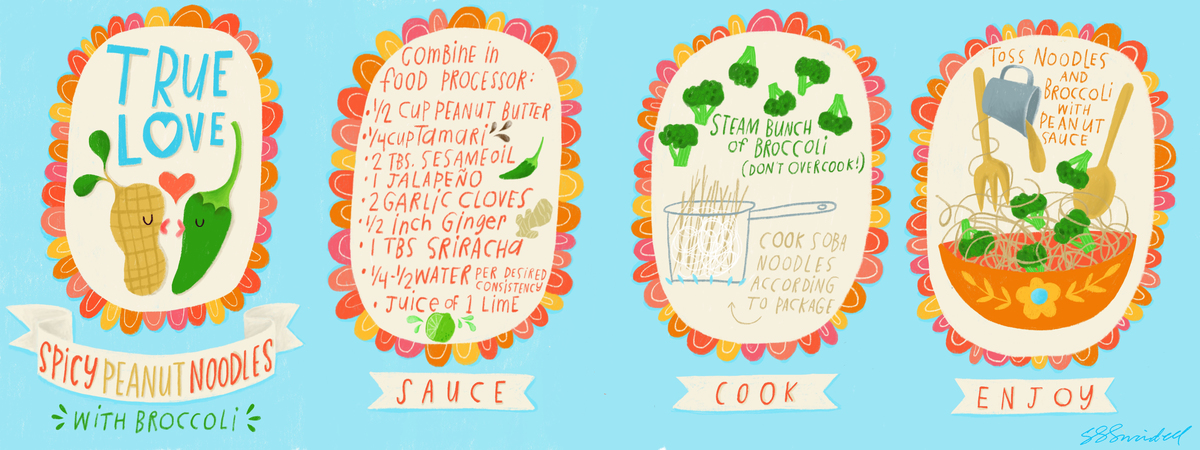 TRUE
LOVE
SPICY PEANUT NOODLES
WITH BROCCOLI
COMBINE in
FOOD PROCESSOR:
• 1/2 CUP PEANUT BUTTER
• 1/4 CUP TAMARI
• 2 TBS. SESAME OIL
• 1 JALAPEÑO
• 2 GARLIC CLOVES
• 1/2 inch Ginger
• 1 TBS SRIRACHA
• 1/4-1/2 WATER PER DESIRED
CONSISTENCY
• JUICE OF 1 LIME
SAUCE
STEAM BUNCH
of BROCCOLI
(DON'T OVERCOOK!)
COOK SOBA
NOODLES
ACCORDING
TO PACKAGE
COOK
TOSS NOODLES
AND
BROCCOLI
WITH
PEANUT
SAUCE
ENJOY